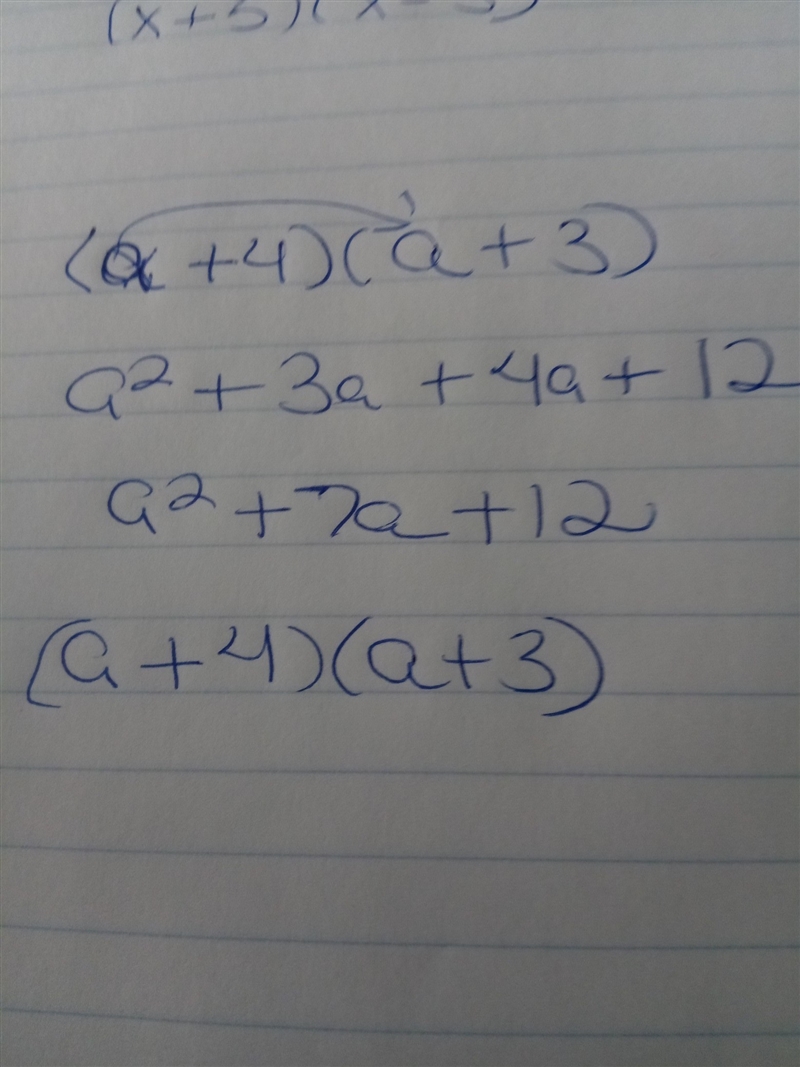 (a+4)(a+3)
a²+3a+4a+12
a²+7a+12
(a+4)(a+3)